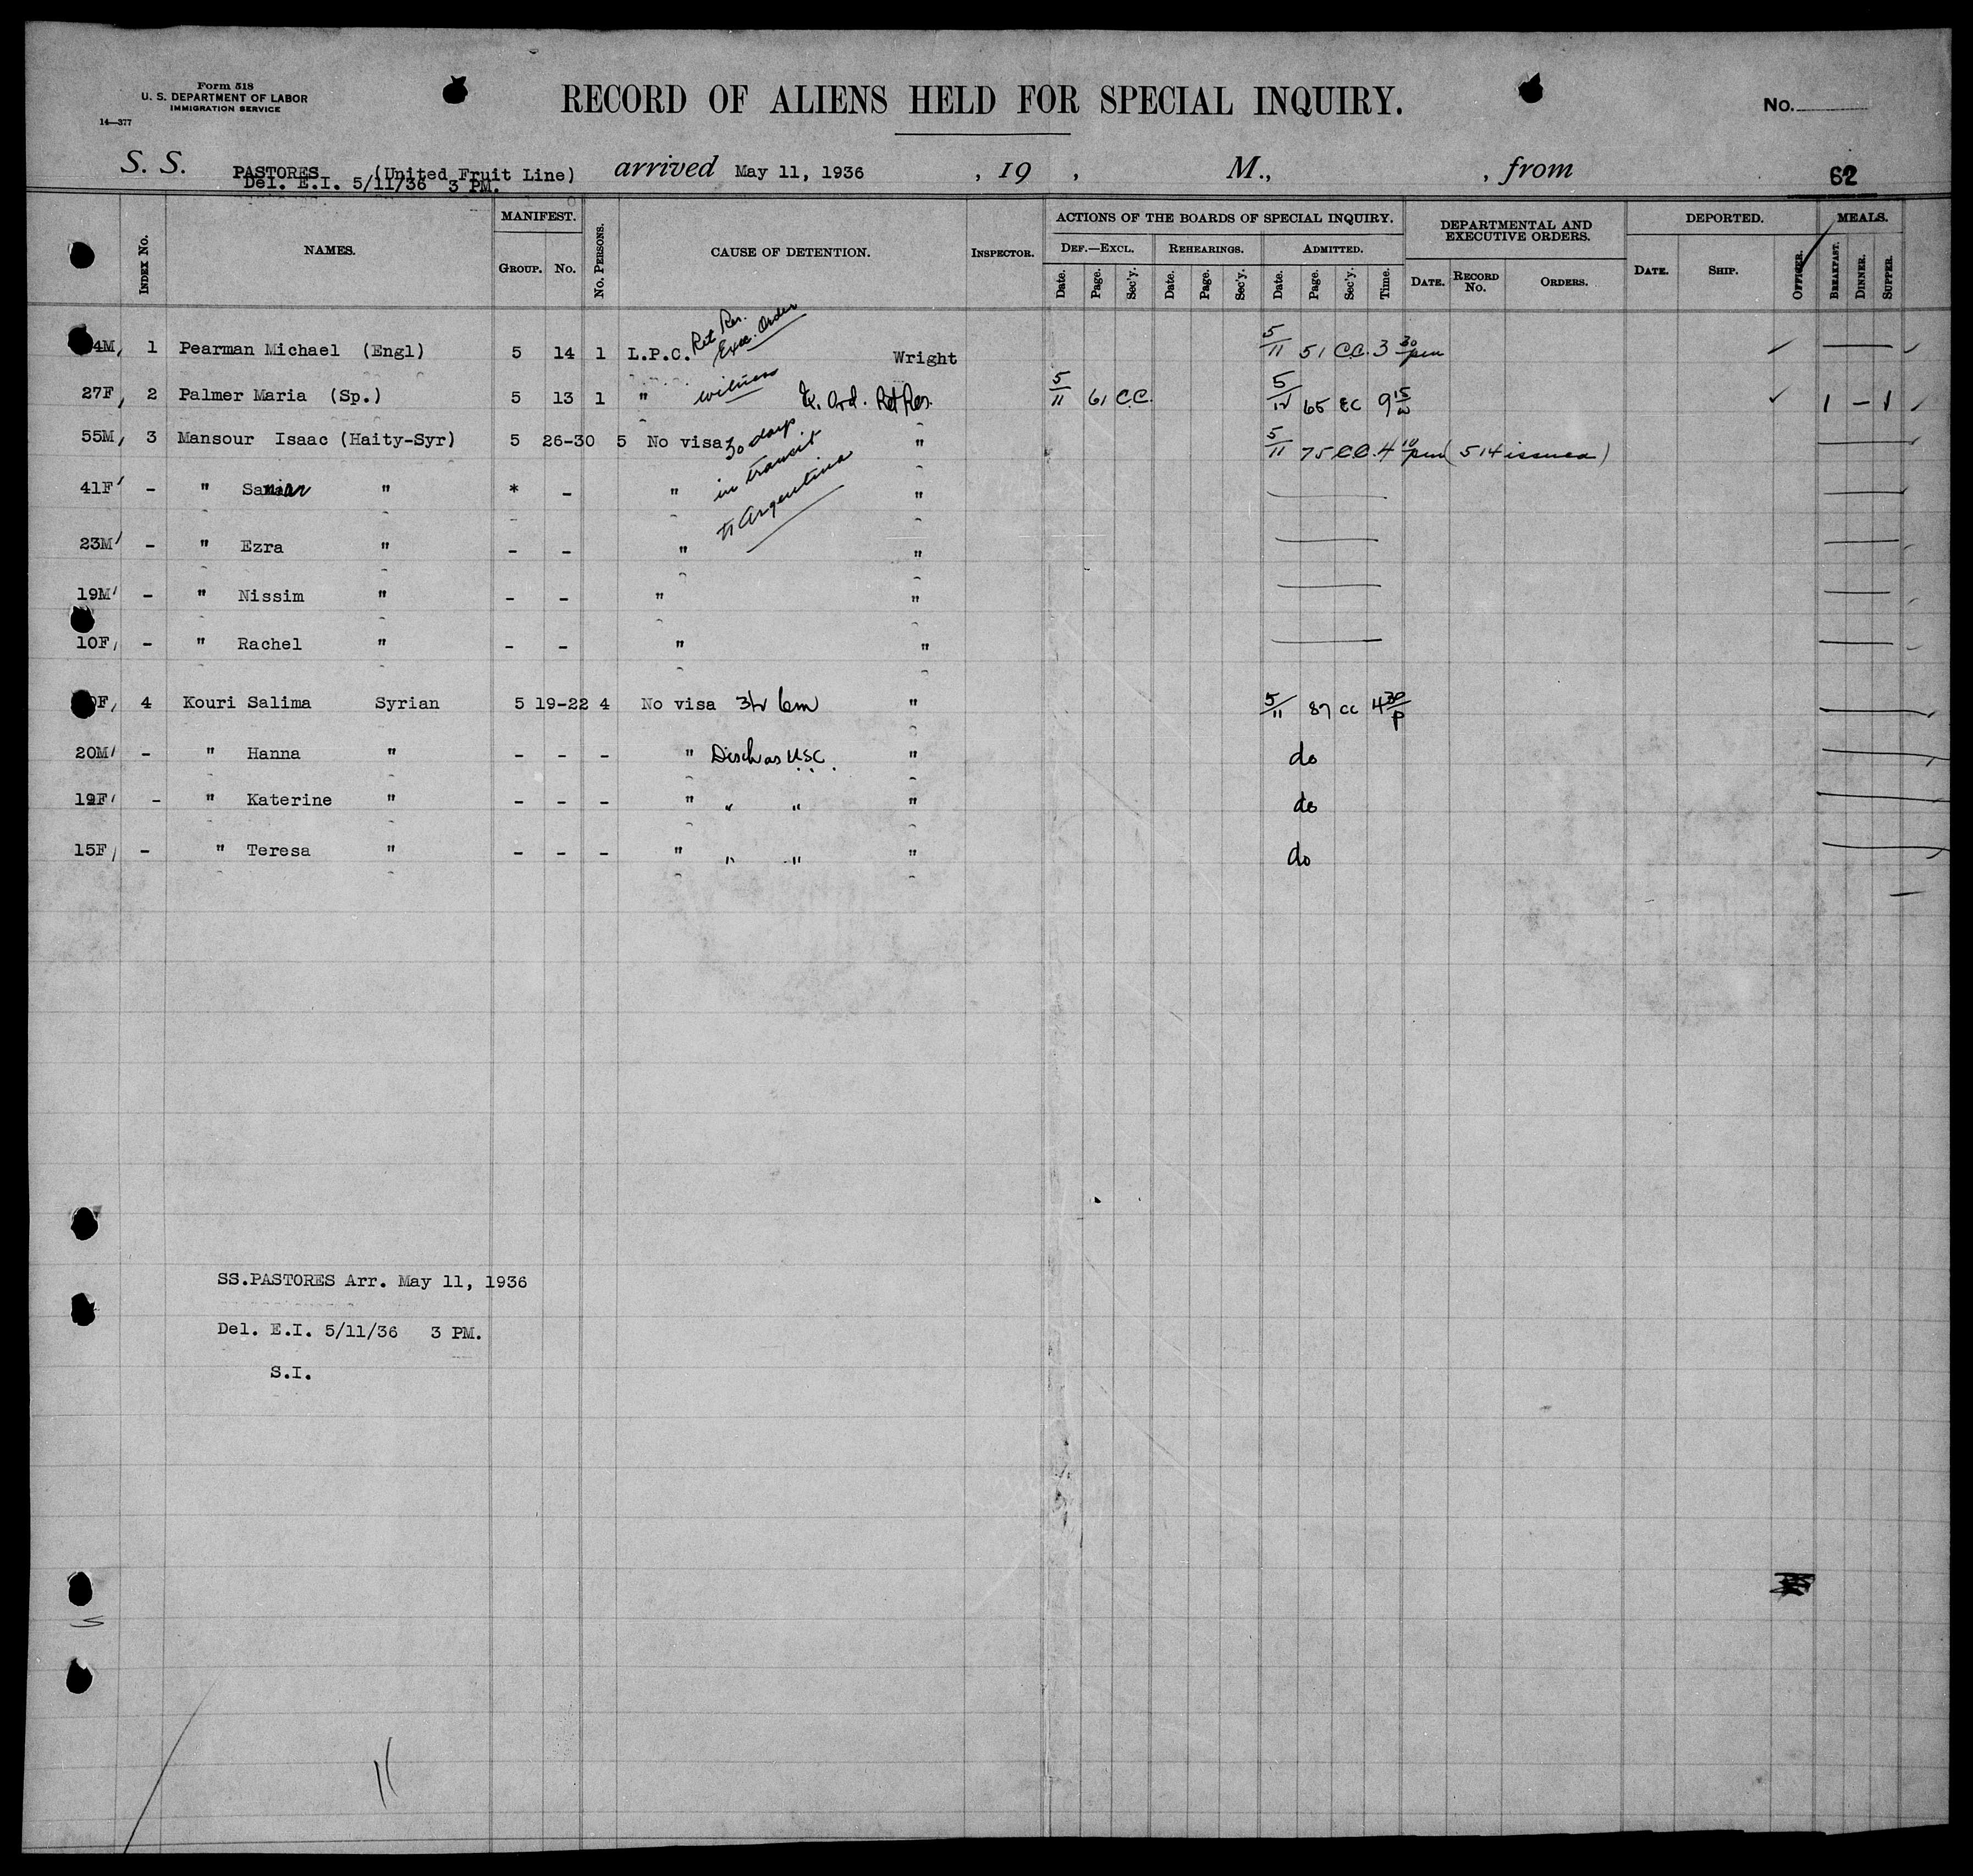 Form 518
U. S. DEPARTMENT OF LABOR
IMMIGRATION SERVICE
14—377
RECORD OF ALIENS HELD FOR SPECIAL INQUIRY.
No.
S. S. PASTORES (United Fruit Line) arrived May 11, 1936 , 19 , M., , from 62
Del. E.I. 5/11/36 3 PM.
INDEX No. NAMES. MANIFEST. GROUP. No. No. PERSONS. CAUSE OF DETENTION. INSPECTOR. ACTIONS OF THE BOARDS OF SPECIAL INQUIRY. DEF.—EXCL. Date. Page. Sec'y. REHEARINGS. Date. Page. Sec'y. ADMITTED. Date. Page. Sec'y. Time. DEPARTMENTAL AND EXECUTIVE ORDERS. DATE. RECORD No. ORDERS. DEPORTED. DATE. SHIP. OFFICER. MEALS. BREAKFAST. DINNER. SUPPER.
4M, 1 Pearman Michael (Engl) 5 14 1 L.P.C. Ret Res. Exec. Order Wright 5/11 51 C.C. 3 30 pm
27F, 2 Palmer Maria (Sp.) 5 13 1 " witness Ex. Ord. Ret Res. 5/11 61 C.C. 5/12 65 EC 9 15 1 — 1
55M, 3 Mansour Isaac (Haity-Syr) 5 26-30 5 No visa 30 days " 5/11 75 C.C. 4 10 pm (514 issued)
41F - " " * - " in transit "
to Argentina
23M - " Ezra " - - " "
19M - " Nissim " - - " "
10F, - " Rachel " - - " "
0F, 4 Kouri Salima Syrian 5 19-22 4 No visa 6m " 5/11 87 CC 4 30 P
20M - " Hanna " - - - " Disch as USC. " do
19F - " Katerine " - - - " " " " do
15F - " Teresa " - - - " " " " do
SS.PASTORES Arr. May 11, 1936
Del. E.I. 5/11/36 3 PM.
S.I.